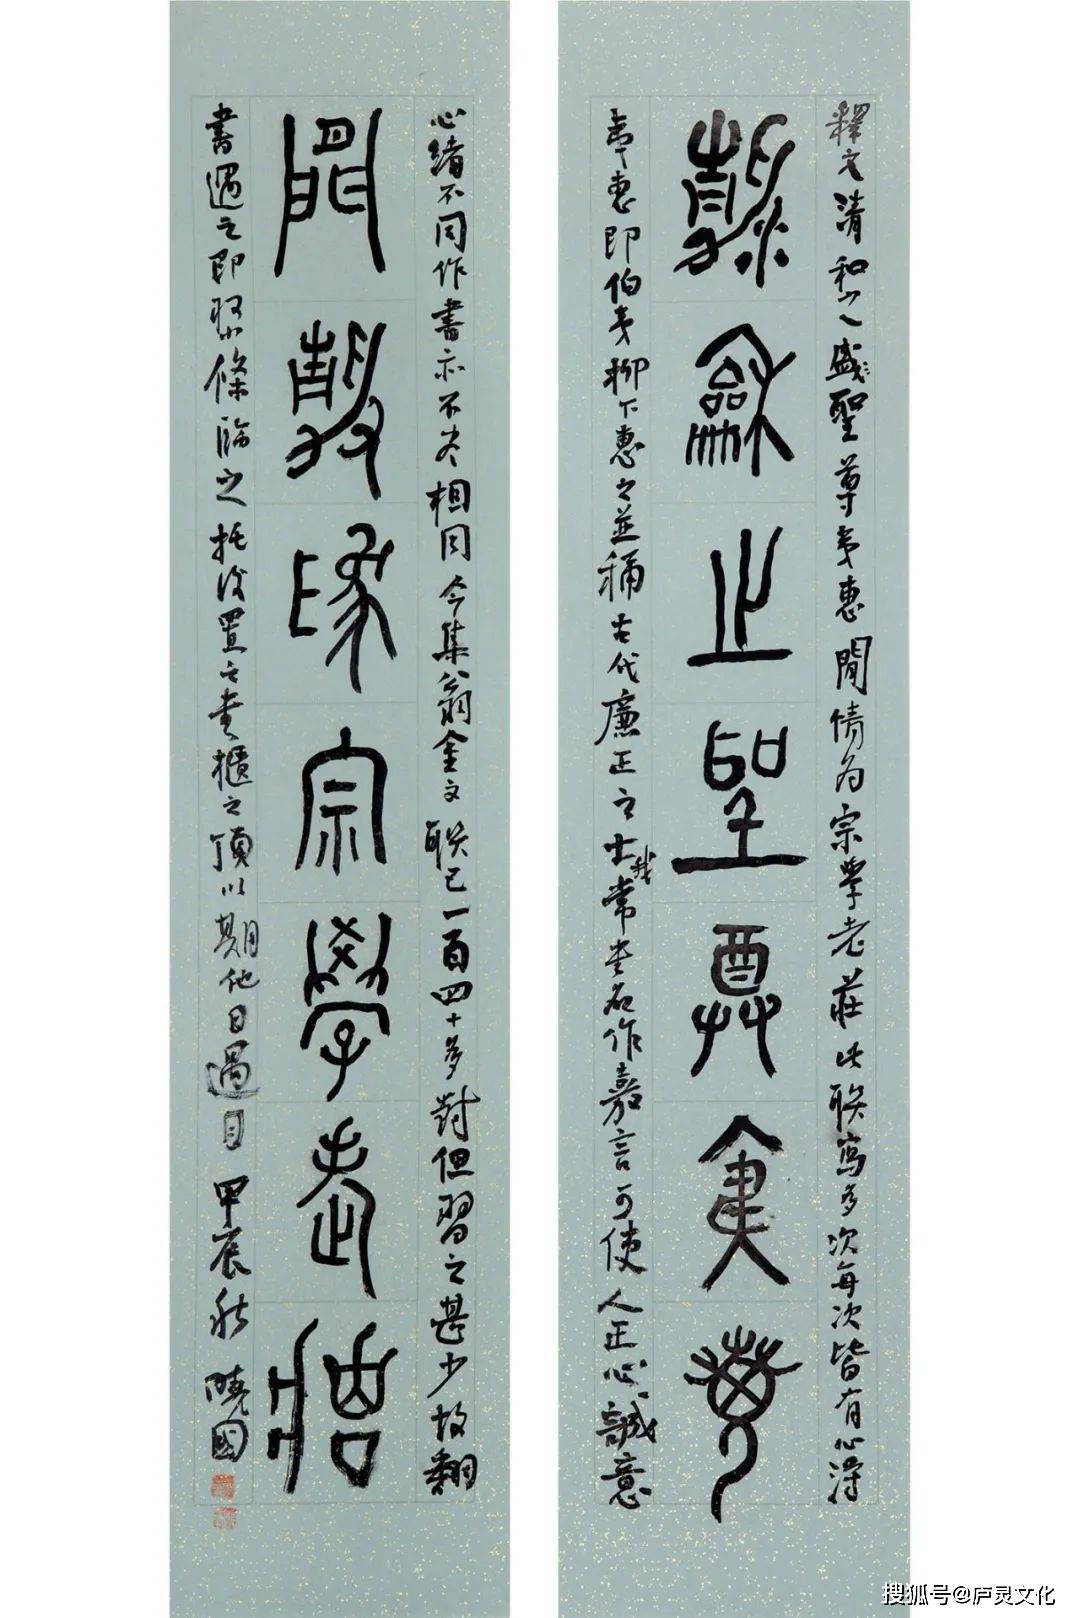 釋文清和之盛聖尊夷惠閒情为宗學老莊此联寫多次每次皆有心得
清龢之聖尊夷惠
夷惠即伯夷柳下惠之並稱古代廉正之士我常书作嘉言可使人正心誠意
心緒不同作書亦不尽相同今集翁金文联已一百四十多對但習之甚少故翻
閒情為宗學老莊
書遇之即條臨之托後置之书櫃之頂以期他日過目甲辰秋曉國
搜狐号@庐灵文化